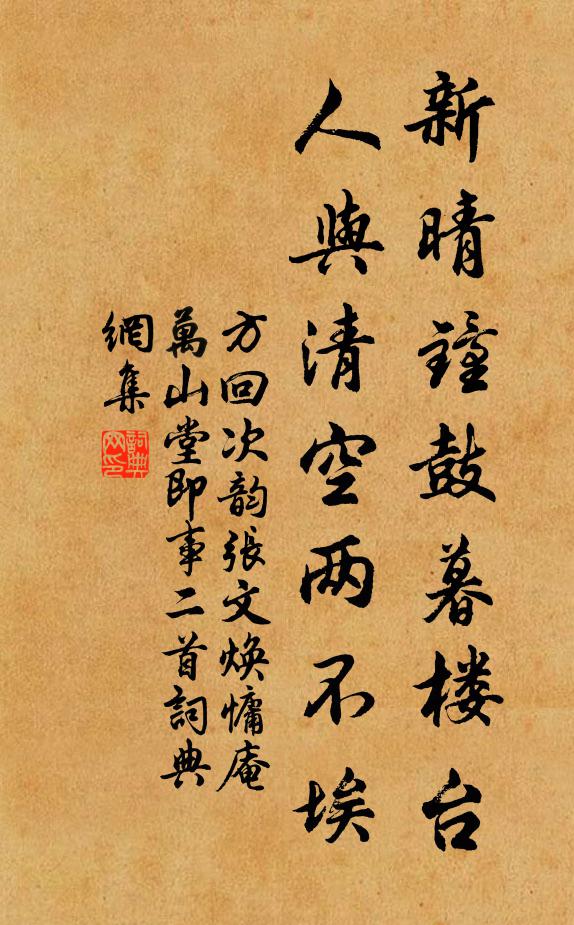 新晴鐘鼓暮楼台
人與清空两不埃
方回次韵張文焕慵庵
萬山堂即事二首詞典
網集
詞典
网印